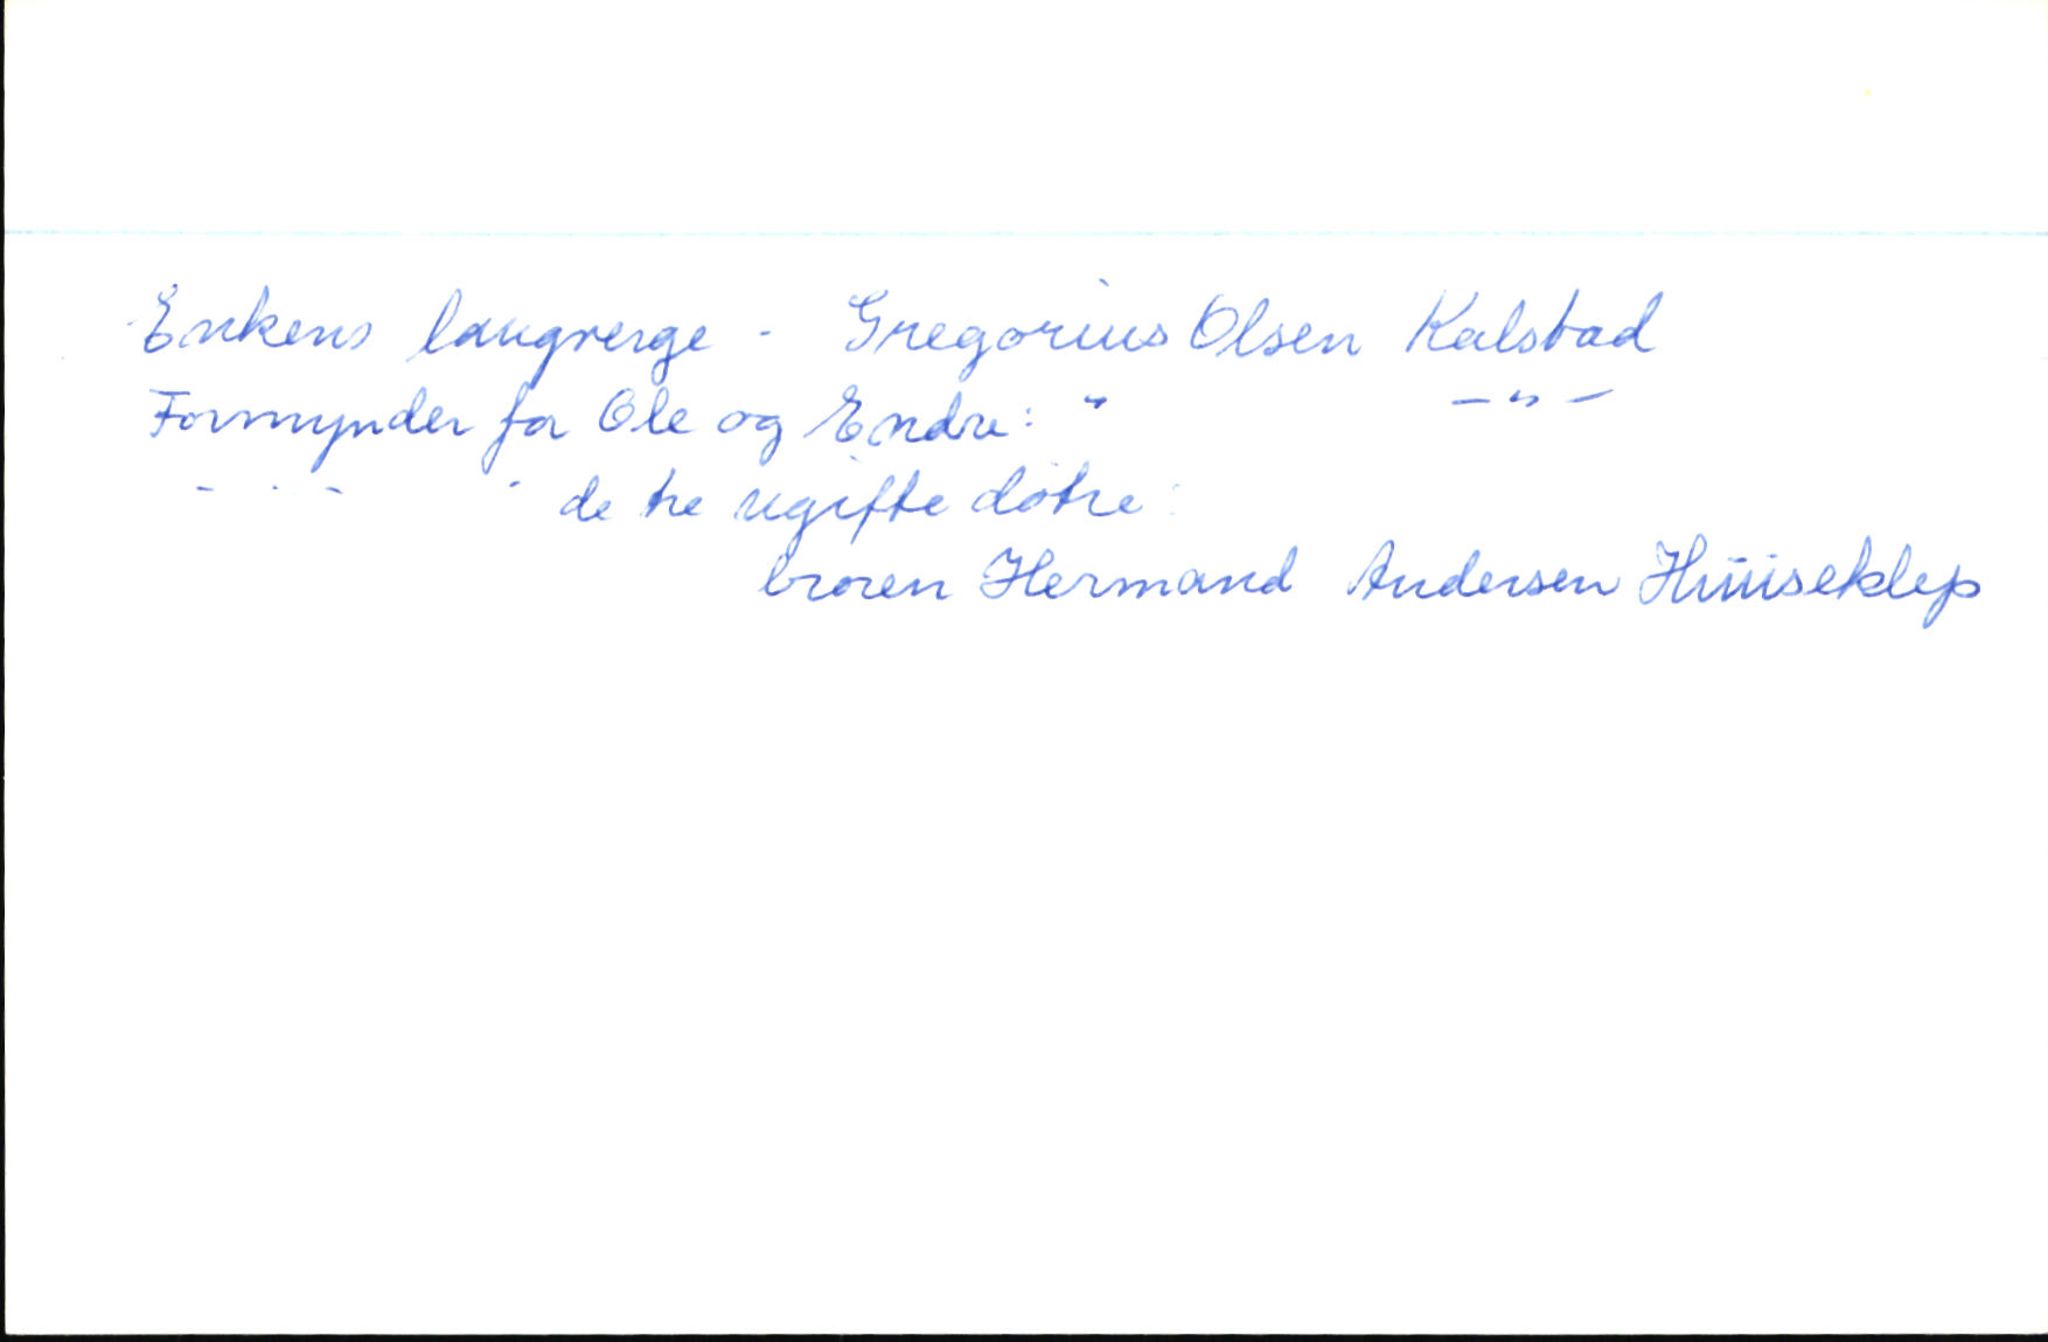 Enkens laugverge - Gregorius Olsen Kalstad
Formynder for Ole og Endre: " - " -
- " - " de tre ugifte døtre:
broren Hermand Andersen Hüüseklep